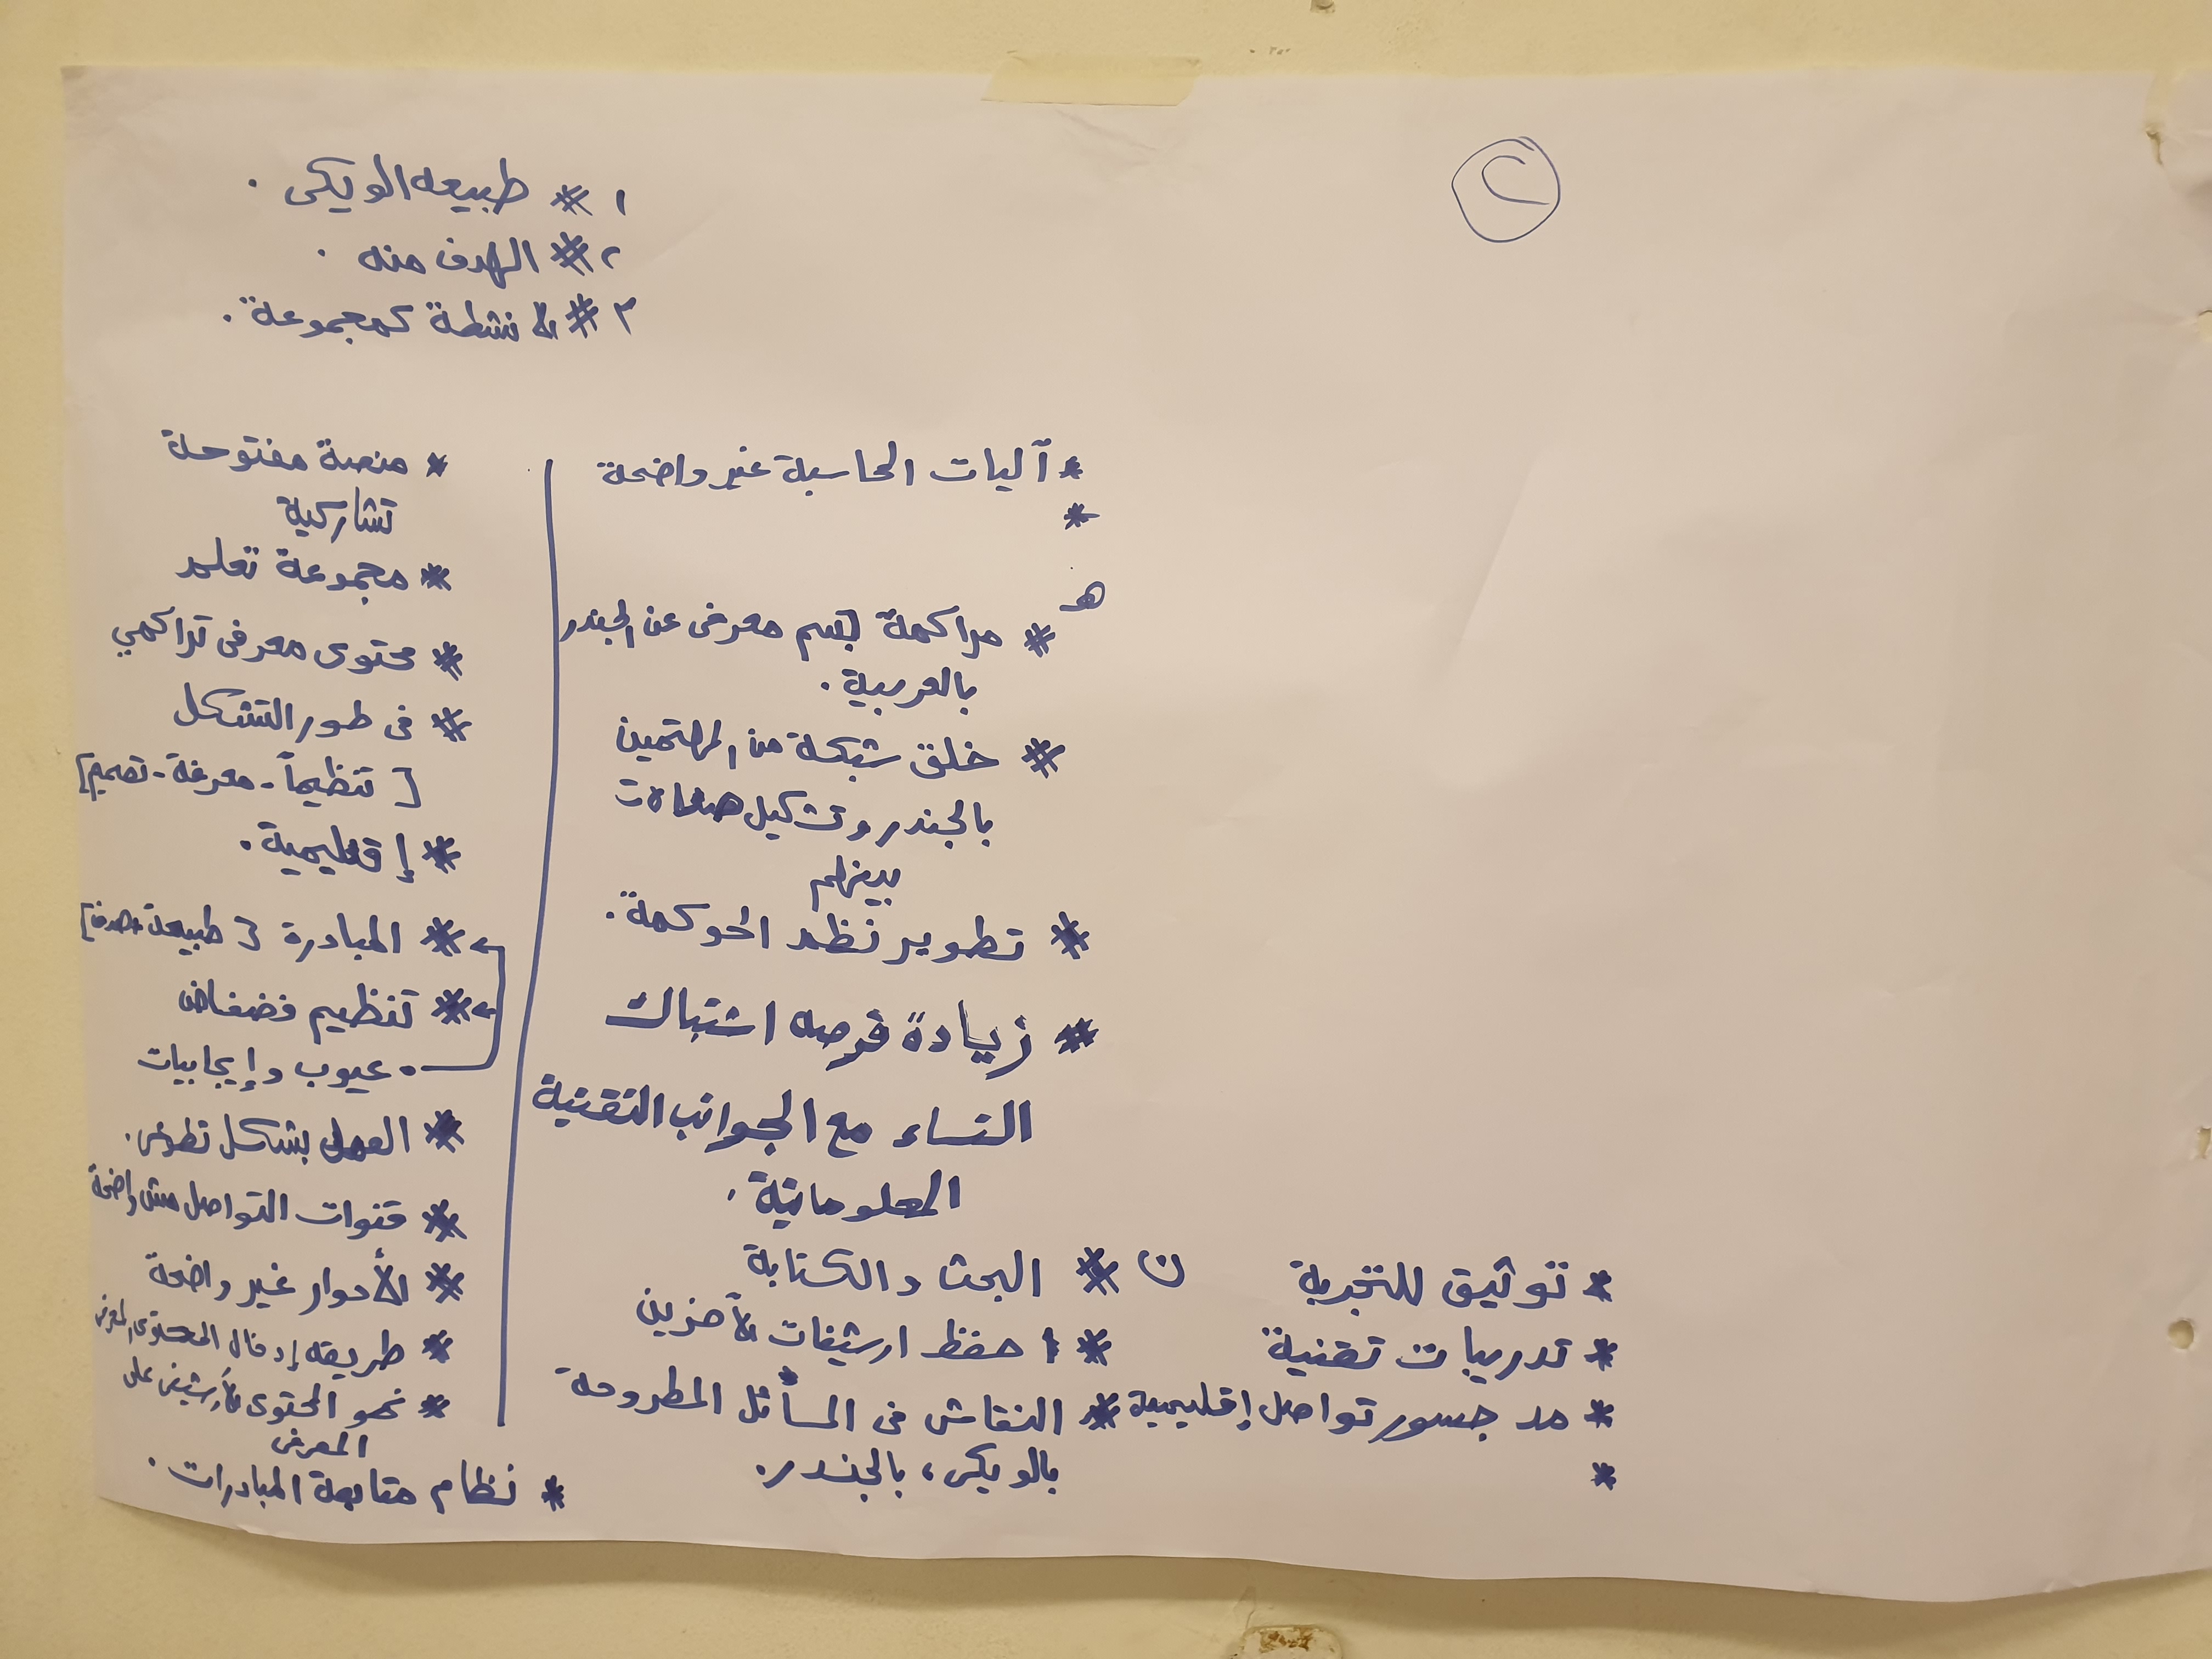 ٢
١ * طبيعه الويكى .
٢ * الهدف منه .
٣ * الأنشطة كمجموعة .
* آليات المحاسبة غير واضحة
*
هـ
* مراكمة جسم معرفى عن الجندر
بالعربية .
* خلق شبكة من المهتمين
بالجندر وتشكيل صلات
بينهم
* تطوير نظم الحوكمة .
* زيادة فرصه اشتباك
النساء مع الجوانب التقنية
المعلوماتية .
ن * البحث والكتابة
* حفظ ارشيفات لآخرين
* النقاش فى المسائل المطروحة
بالويكى، بالجندر.
* توثيق للتجربة
* تدريبات تقنية
* مد جسور تواصل إقليمية
*
* منصة مفتوحة
تشاركية
* مجموعة تعلم
* محتوى معرفى تراكمي
* فى طور التشكل
[ تنظيماً - معرفة - تصميم ]
* إقليمية .
* المبادرة [ طبيعة وهدف ]
* تنظيم فضفاض
عيوب وإيجابيات
* العمل بشكل تطوعى .
* قنوات التواصل مش واضحة
* الأدوار غير واضحة
* طريقه إدخال المحتوى المعرفى
* نحو المحتوى الأرشيفى على
المعرفى
* نظام متابعة المبادرات .